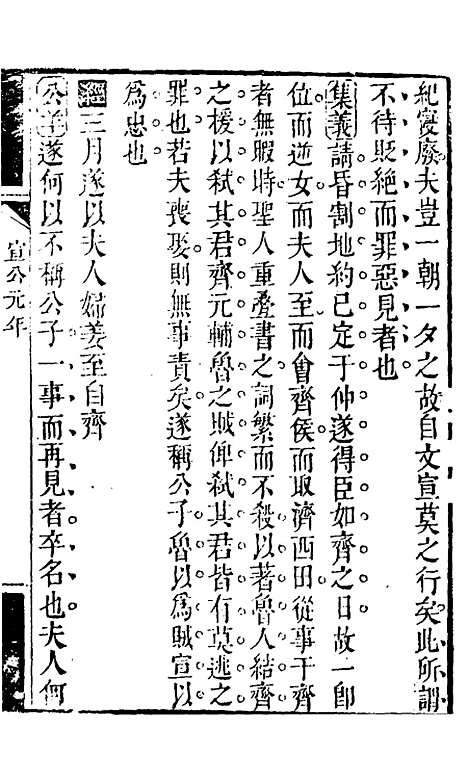 紀變廢夫豈一朝一夕之故自文宣莫之行矣此所謂
不待貶絶而罪惡見者也
集義請昏割地約已定于仲遂得臣如齊之日故一卽
位而逆女而夫人至而會齊侯而取濟西田從事于齊
者無暇時聖人重疊書之詞繁而不殺以著魯人結齊
之援以弑其君齊元輔魯之賊俾弑其君皆有莫逃之
罪也若夫喪娶則無事責矣遂稱公子魯以爲賊宣以
爲忠也
經三月遂以夫人婦姜至自齊
公羊遂何以不稱公子一事而再見者卒名也夫人何
宣公元年